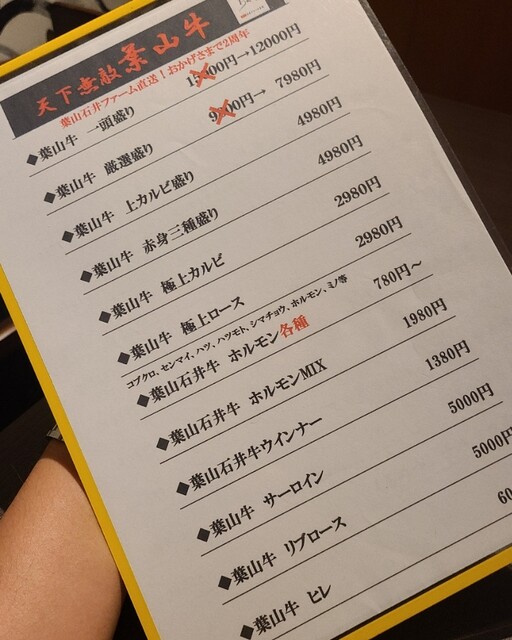 天下無敵葉山牛
葉山石井ファーム直送!おかげさまで2周年
◆葉山牛 一頭盛り →12000円
◆葉山牛 厳選盛り → 7980円
◆葉山牛 上カルビ盛り 4980円
◆葉山牛 赤身三種盛り 4980円
◆葉山牛 極上カルビ 2980円
◆葉山牛 極上ロース 2980円
コブクロ、センマイ、ハツ、ハツモト、シマチョウ、ホルモン、ミノ等
◆葉山石井牛 ホルモン各種 780円～
◆葉山石井牛 ホルモンMIX 1980円
◆葉山石井牛ウインナー 1380円
◆葉山牛 サーロイン 5000円
◆葉山牛 リブロース 5000円
◆葉山牛 ヒレ 60